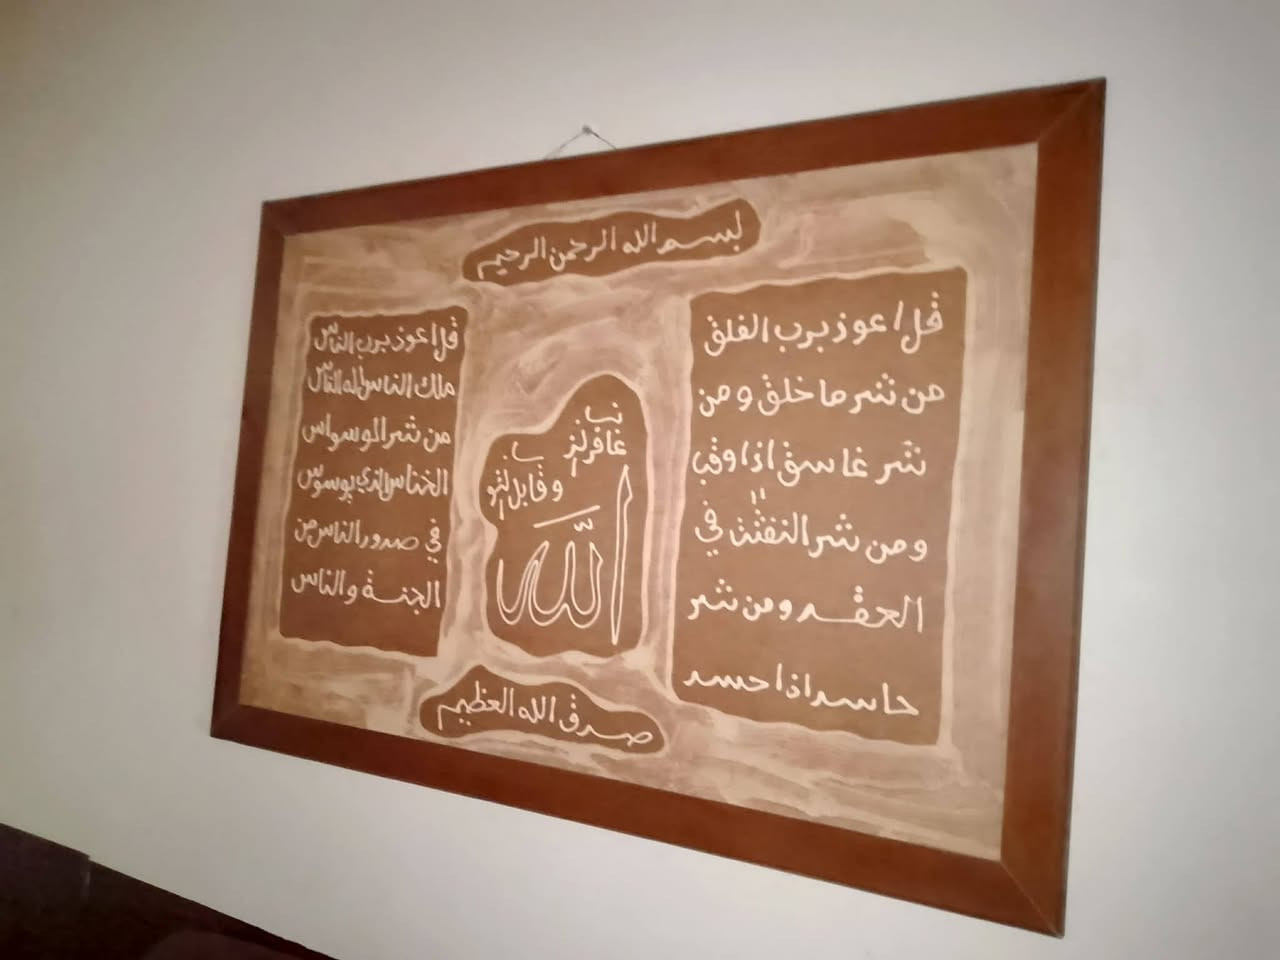 بسم الله الرحمن الرحيم
قل اعوذ برب الفلق
من شر ما خلق ومن
شر غاسق اذا وقب
ومن شر النفثت في
العقد ومن شر
حاسد اذا حسد
غافر الذنب
وقابل التوب
الله
قل اعوذ برب الناس
ملك الناس اله الناس
من شر الوسواس
الخناس الذي يوسوس
في صدور الناس من
الجنة والناس
صدق الله العظيم